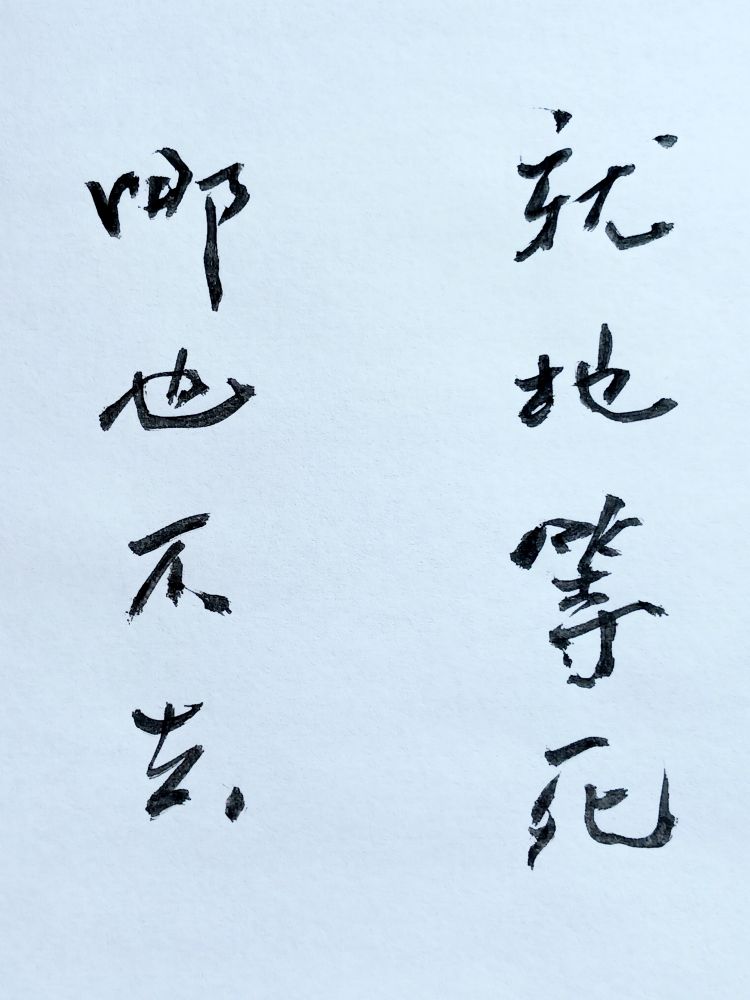 就地等死
哪也不去